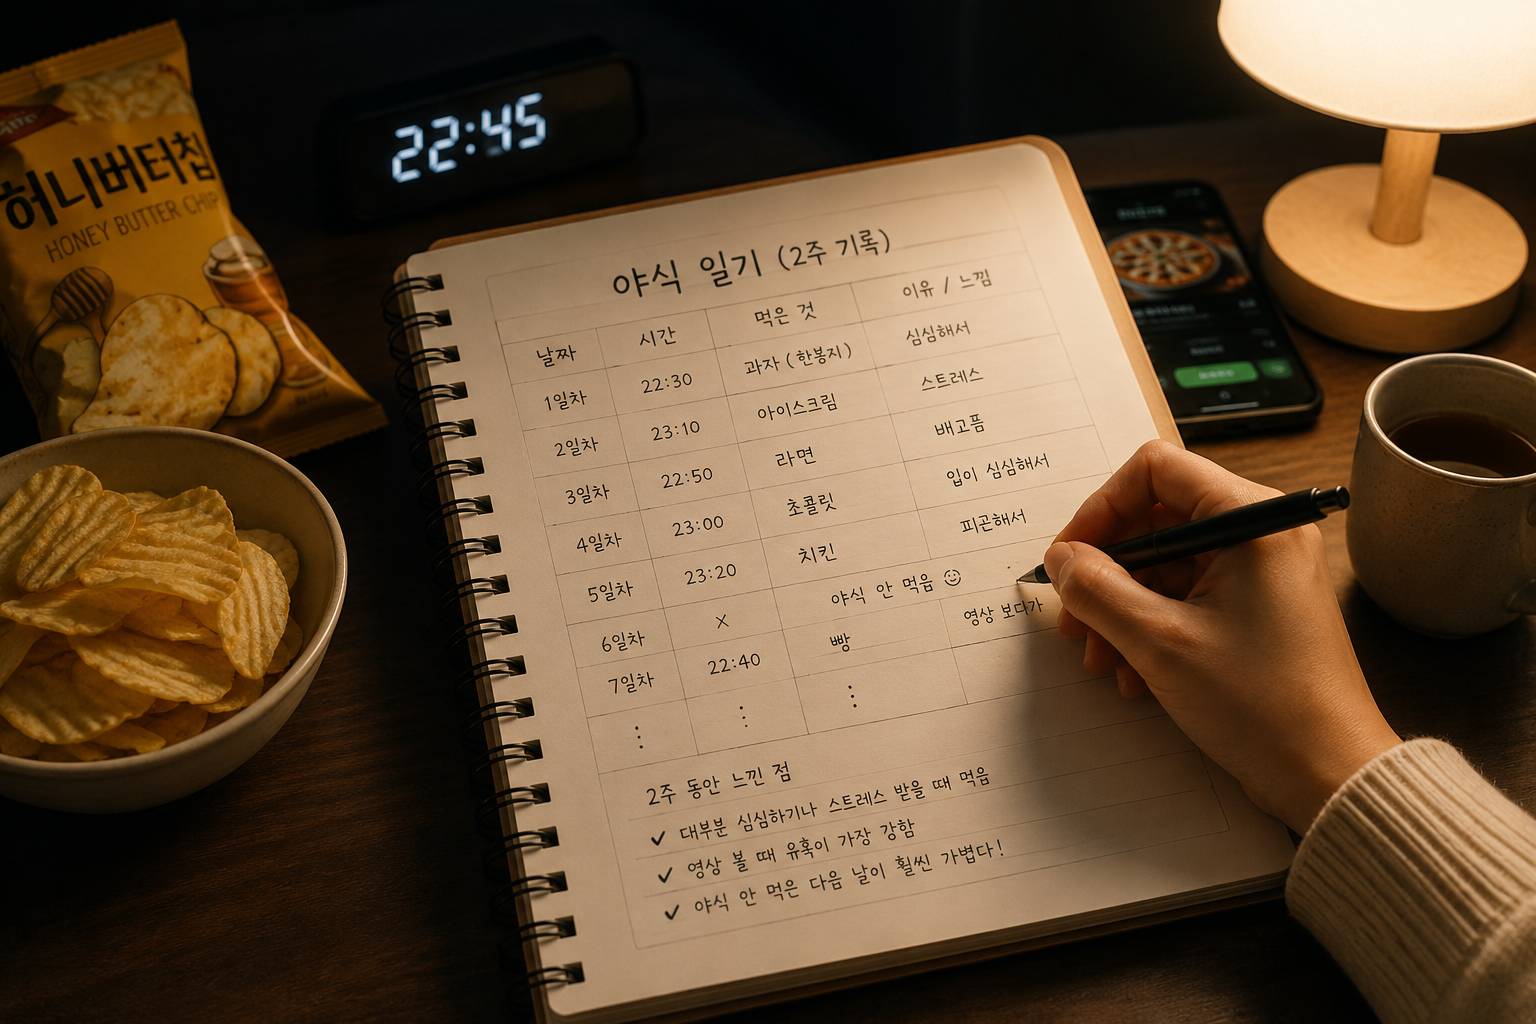 허니버터칩
HONEY BUTTER CHIP
22:45
야식 일기 (2주 기록)
날짜 시간 먹은 것 이유 / 느낌
1일차 22:30 과자 (한봉지) 심심해서
2일차 23:10 아이스크림 스트레스
3일차 22:50 라면 배고픔
4일차 23:00 초콜릿 입이 심심해서
5일차 23:20 치킨 피곤해서
6일차 x 야식 안 먹음 ☺
7일차 22:40 빵 영상 보다가
⋮ ⋮ ⋮
2주 동안 느낀 점
✓ 대부분 심심하기나 스트레스 받을 때 먹음
✓ 영상 볼 때 유혹이 가장 강함
✓ 야식 안 먹은 다음 날이 훨씬 가볍다!